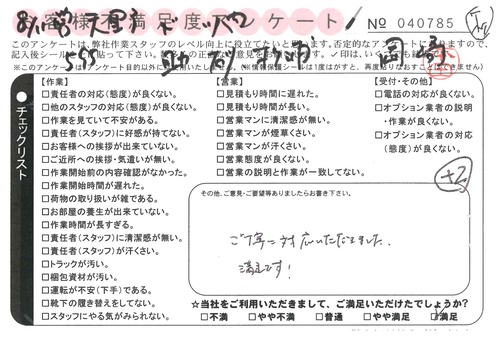 お客様不満足度アンケート
No 040785
このアンケートは、弊社作業スタッフのレベル向上に役立てたいと思います。否定的なアンケートになりますので、
チェックリスト
【作業】
□責任者の対応(態度)が良くない。
□他のスタッフの対応(態度)が良くない。
□作業を見ていて不安がある。
□責任者(スタッフ)に好感が持てない。
□お客様への挨拶が出来ていない。
□ご近所への挨拶・気遣いが無い。
□作業開始前の内容確認がなかった。
□作業開始時間が遅れた。
□荷物の取り扱いが雑である。
□お部屋の養生が出来ていない。
□作業時間が長すぎる。
□責任者(スタッフ)に清潔感が無い。
□責任者(スタッフ)が汗くさい。
□トラックが汚い。
□梱包資材が汚い。
□運転が不安(下手)である。
□靴下の履き替えをしてない。
□スタッフにやる気がみられない。
【営業】
□見積もり時間に遅れた。
□見積もり時間が長い。
□営業マンに清潔感が無い。
□営業マンが煙草くさい。
□営業マンが汗くさい。
□営業態度が良くない。
□営業の説明と作業が一致してない。
【受付・その他】
□電話の対応が良くない。
□オプション業者の説明
・作業が良くない。
□オプション業者の対応
(態度)が良くない。
その他、ご意見・ご要望等ありましたらお書き下さい。
ご丁寧に対応いただきました。
満足です!
☆当社をご利用いただきまして、ご満足いただけたでしょうか?
□不満 □やや不満 □普通 □やや満足 □満足